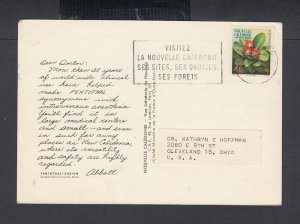 Dear Doctor:
More than 25 years
of world-wide clinical
use have helped
make PENTOTHAL
synonymous with
intravenous anesthesia
You'll find it in
large medical centers
and small—and even
in such far away
places as New Caledonia,
where its versatility
and safety are highly
regarded.
PENTOTHAL SODIUM
Abbott
NOUVELLE CALEDONIE
VISITEZ
LA NOUVELLE CALEDONIE
SES SITES, SES GROTTES,
SES FORETS
DR. KATHRYN E HOFFMAN
2060 E 9TH ST
CLEVELAND 15, OHIO
U. S. A.